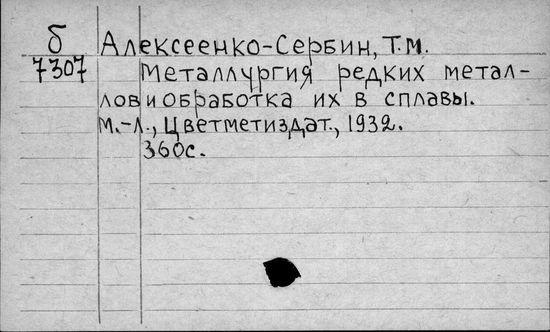 б Алексеенко-Сербин, Т.М.
7307 Металлургия редких метал-
лов и обработка их в сплавы.
М.-Л., Цветметиздат., 1932.
360с.